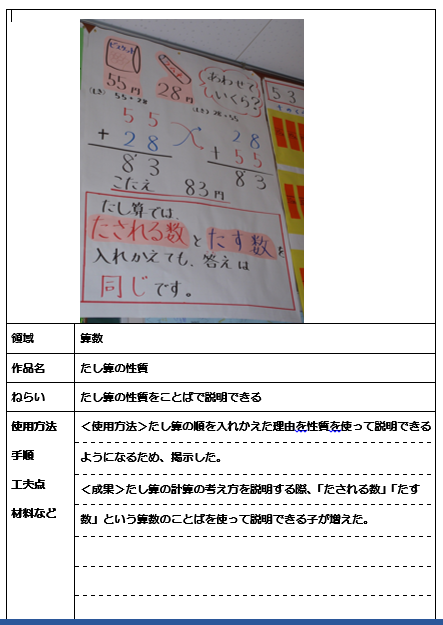 ビスケット
55円
28円
あわせて
いくら?
(しき) 55+28
(しき) 28+55
55
+ 28
83
28
+ 55
83
こたえ 83円
たし算では、
たされる数 と たす数 を
入れかえても、答えは
同じです。
53
領域 算数
作品名 たし算の性質
ねらい たし算の性質をことばで説明できる
使用方法 <使用方法>たし算の順を入れかえた理由を性質を使って説明できる
手順 ようになるため、掲示した。
工夫点 <成果>たし算の計算の考え方を説明する際、「たされる数」「たす
材料など 数」という算数のことばを使って説明できる子が増えた。